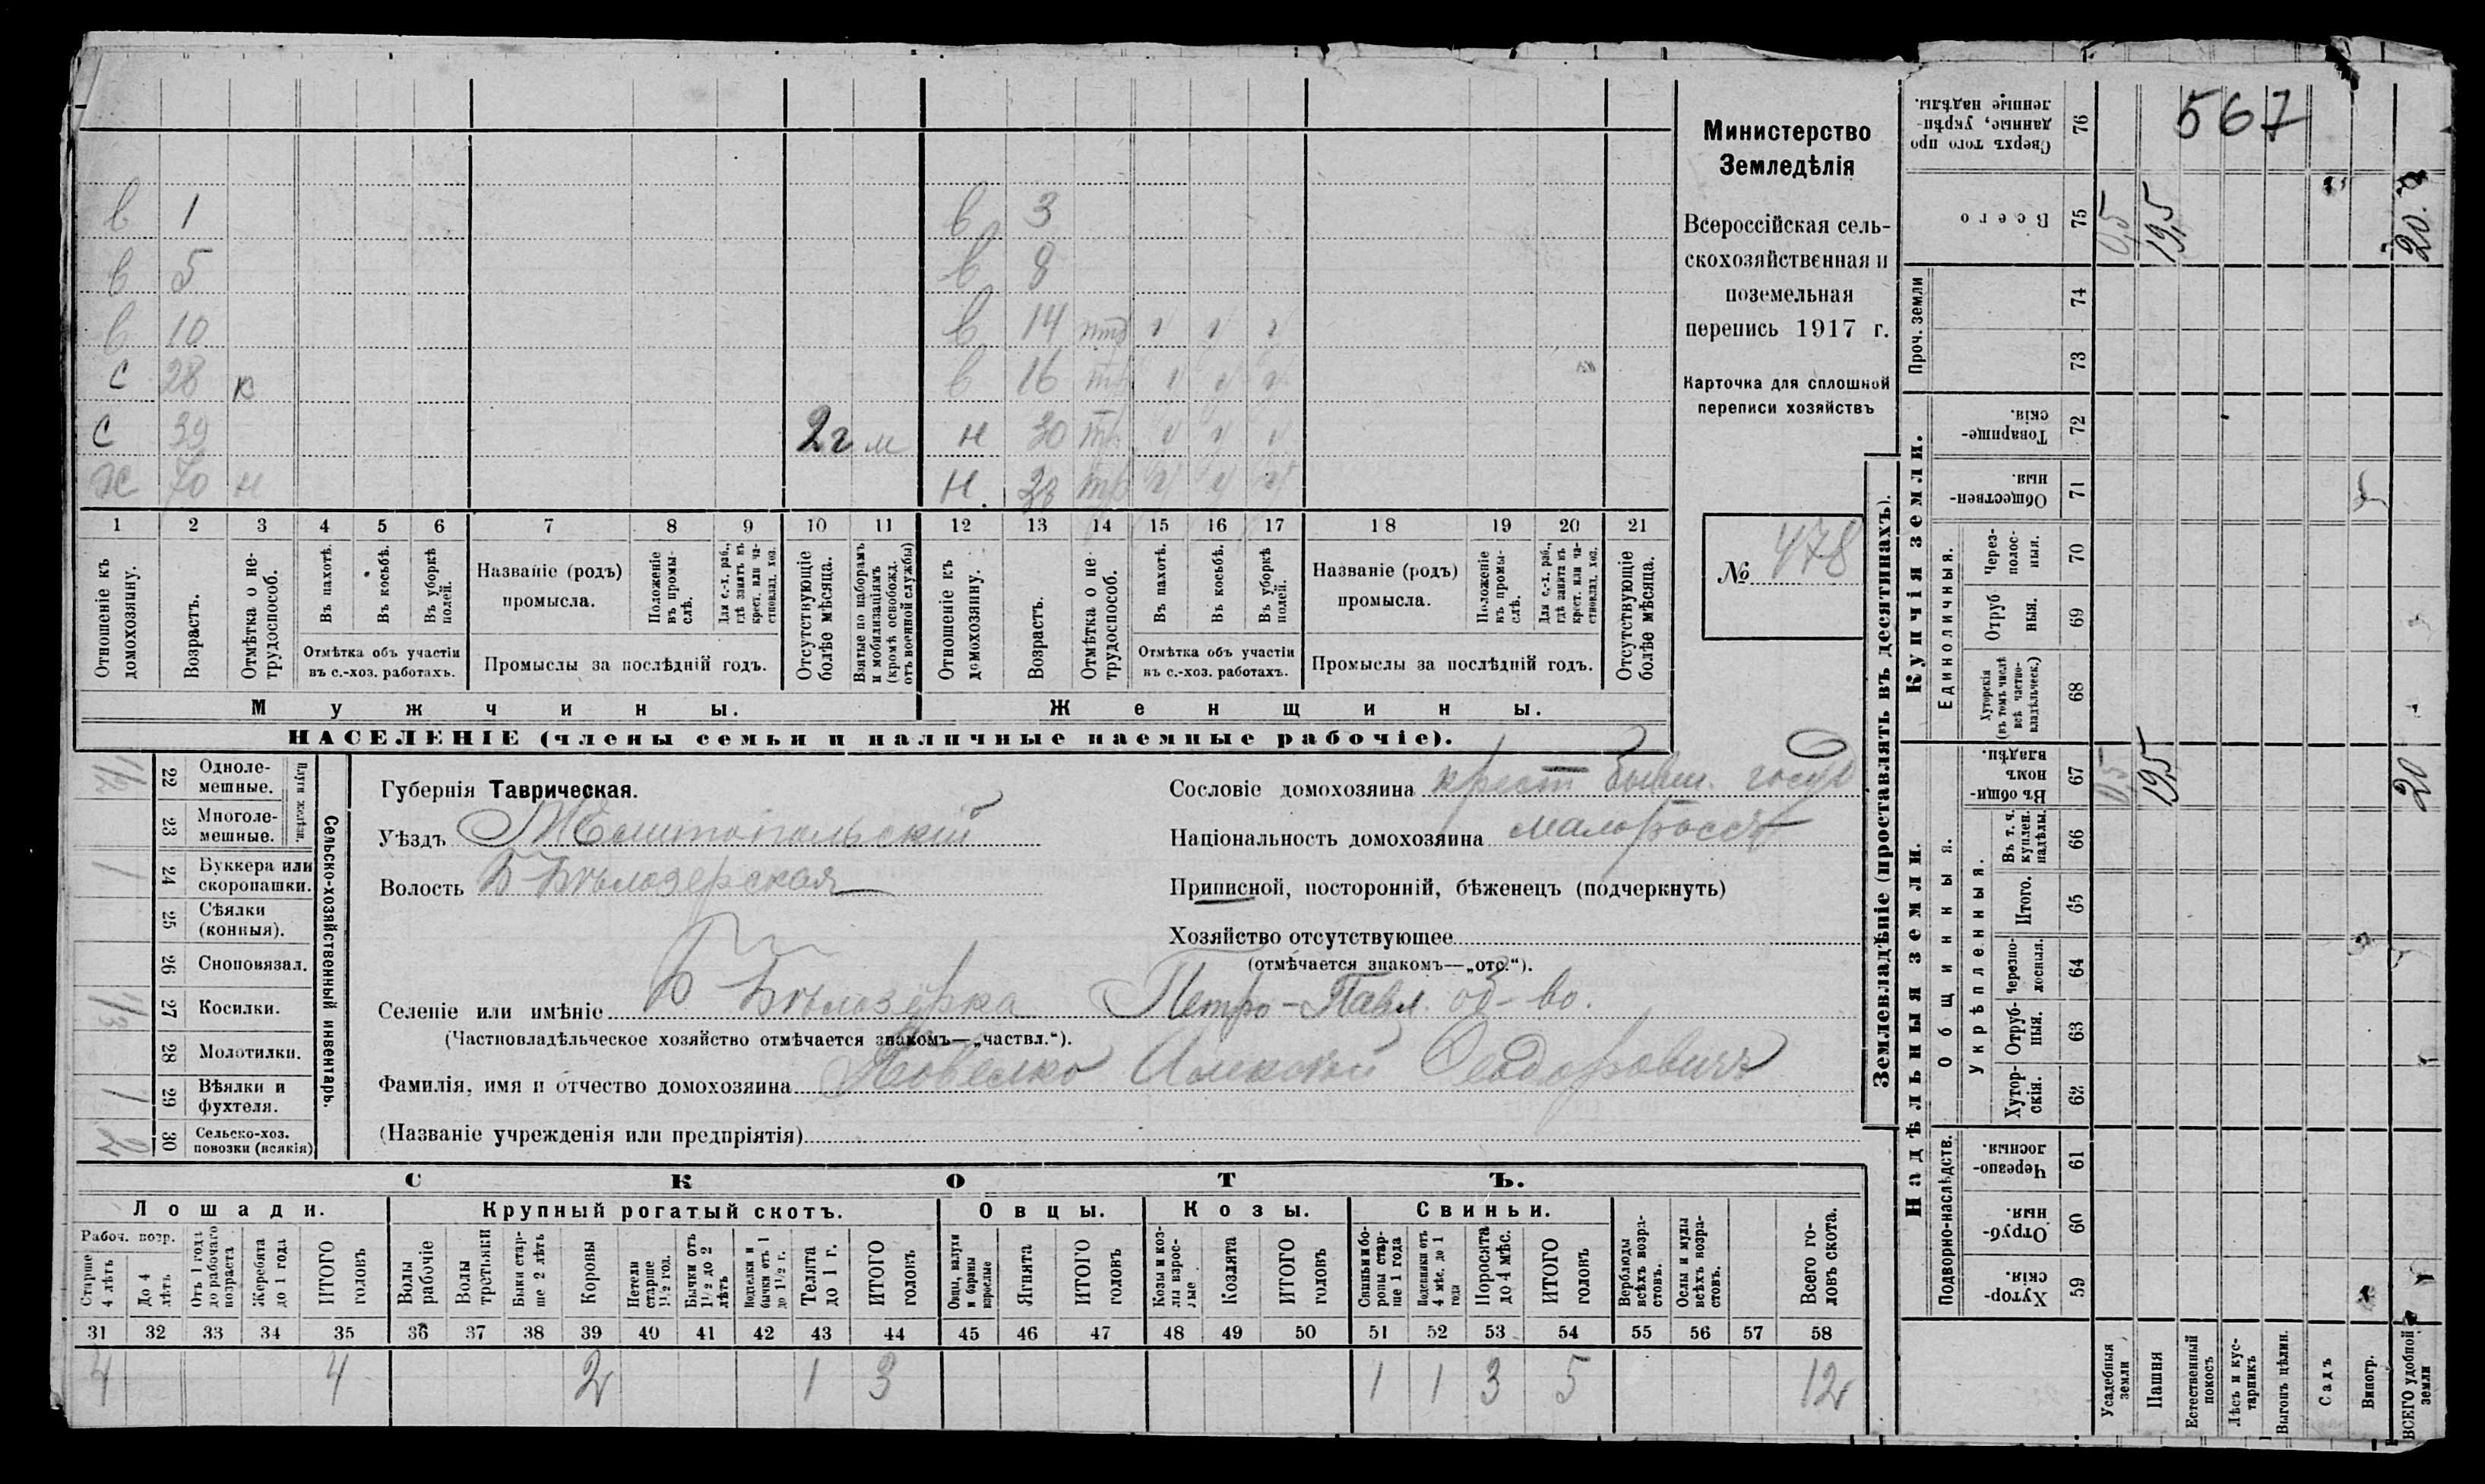 567
Министерство
Земледѣлія
Всероссійская сель-
скохозяйственная и
поземельная
перепись 1917 г.
Карточка для сплошной
переписи хозяйствъ
№ 478
в 1 в 3
в 5 в 8
в 10 в 14 птр ч ч ч
с 28 к в 16 тр ч ч ч
с 39 2г м н 30 тр ч ч ч
ж 70 н н 38 тр ч ч ч
1 2 3 4 5 6 7 8 9 10 11 12 13 14 15 16 17 18 19 20 21
Отношеніе къ домохозяину.
Возрастъ.
Отмѣтка о не-трудоспособ.
Въ пахотѣ.
Въ косьбѣ.
Въ уборкѣ полей.
Отмѣтка объ участіи
въ с.-хоз. работахъ.
Названіе (родъ)
промысла.
Положеніе въ промы-слѣ.
Для с.-х. раб., гдѣ занятъ въ крест. или ча-стновлад. хоз.
Промыслы за послѣдній годъ.
Отсутствующіе болѣе мѣсяца.
Взятые по наборамъ и мобилизаціямъ (кромѣ освобожд. отъ военной службы)
Отношеніе къ домохозяину.
Возрастъ.
Отмѣтка о не-трудоспособ.
Въ пахотѣ.
Въ косьбѣ.
Въ уборкѣ полей.
Отмѣтка объ участіи
въ с.-хоз. работахъ.
Названіе (родъ)
промысла.
Положеніе въ промы-слѣ.
Для с.-х. раб., гдѣ занята въ крест. или ча-стновлад. хоз.
Промыслы за послѣдній годъ.
Отсутствующіе болѣе мѣсяца.
Мужчины. Женщины.
НАСЕЛЕНІЕ (члены семьи и наличные наемные рабочіе).
Сельско-хозяйственный инвентарь.
22 Однолемешные.
23 Многолемешные.
1 24 Буккера или скоропашки.
25 Сѣялки (конныя).
26 Сноповязал.
1/3 27 Косилки.
28 Молотилки.
1 29 Вѣялки и фухтеля.
2 30 Сельско-хоз. повозки (всякія)
Губернія Таврическая.
Уѣздъ Мелитопольскій
Волость Б Бѣлозерская
Сословіе домохозяина крест бывш. госуд
Національность домохозяина малороссъ
Приписной, посторонній, бѣженецъ (подчеркнуть)
Хозяйство отсутствующее
(отмѣчается знакомъ—„отс.“).
Селеніе или имѣніе Б Бѣлозерка Петро-Павл. об-во.
(Частновладѣльческое хозяйство отмѣчается знакомъ—„частвл.“).
Фамилія, имя и отчество домохозяина Алексѣй Феодоровичъ
(Названіе учрежденія или предпріятія)
СКОТЪ.
Лошади. Крупный рогатый скотъ. Овцы. Козы. Свиньи.
Рабоч. возр.
Старше 4 лѣтъ
До 4 лѣтъ
Отъ 1 года до рабочаго возраста
Жеребята до 1 года
ИТОГО головъ
Волы рабочіе
Волы третьяки
Быки старше 2 лѣтъ
Коровы
Нетели старше 1½ год.
Бычки отъ 1½ до 2 лѣтъ
Подтелки и бычки отъ 1 до 1½ г.
Телята до 1 г.
ИТОГО головъ
Овцы, валухи и бараны взрослые
Ягнята
ИТОГО головъ
Козы и козлы взрослые
Козлята
ИТОГО головъ
Свиньи и боровы старше 1 года
Подсвинки отъ 4 мѣс. до 1 года
Поросята до 4 мѣс.
ИТОГО головъ
Верблюды всѣхъ возрастовъ.
Ослы и мулы всѣхъ возрастовъ.
Всего головъ скота.
31 32 33 34 35 36 37 38 39 40 41 42 43 44 45 46 47 48 49 50 51 52 53 54 55 56 57 58
4 4 2 1 3 1 1 3 5 12
Землевладѣніе (проставлять въ десятинахъ).
Надѣльныя земли. Купчія земли. Проч. земли
Подворно-наслѣдств.
Общинныя.
Укрѣпленныя.
Единоличныя.
Хуторскія 59
Отрубныя. 60
Черезполосныя. 61
Хуторскія. 62
Отрубныя. 63
Черезполосныя. 64
Итого. 65
Въ т. ч. куплен. надѣлы. 66
Въ общинномъ владѣн. 67
Хуторскія (въ томъ числѣ всѣ частновладѣльческ.) 68
Отрубныя. 69
Черезполосныя. 70
Общественныя. 71
Товарищескія. 72
73
74
Всего 75
Сверхъ того проданные, укрѣпленные надѣлы. 76
Усадебныя земли 0,5 0,5
Пашня 19,5 19,5
Естественный покосъ
Лѣсъ и кустарникъ
Выгонъ цѣлин.
Садъ
Виногр.
ВСЕГО удобной земли 20 20